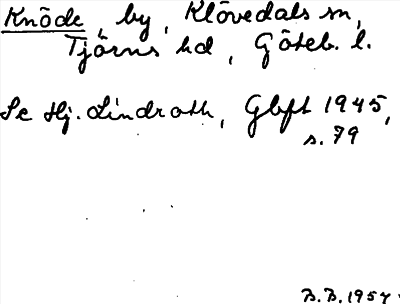 Knöde, by, Klövedals sn,
Tjörns hd, Göteb. l.
Se Hj. Lindroth, Gbft 1945,
s. 79
B.B. 1957